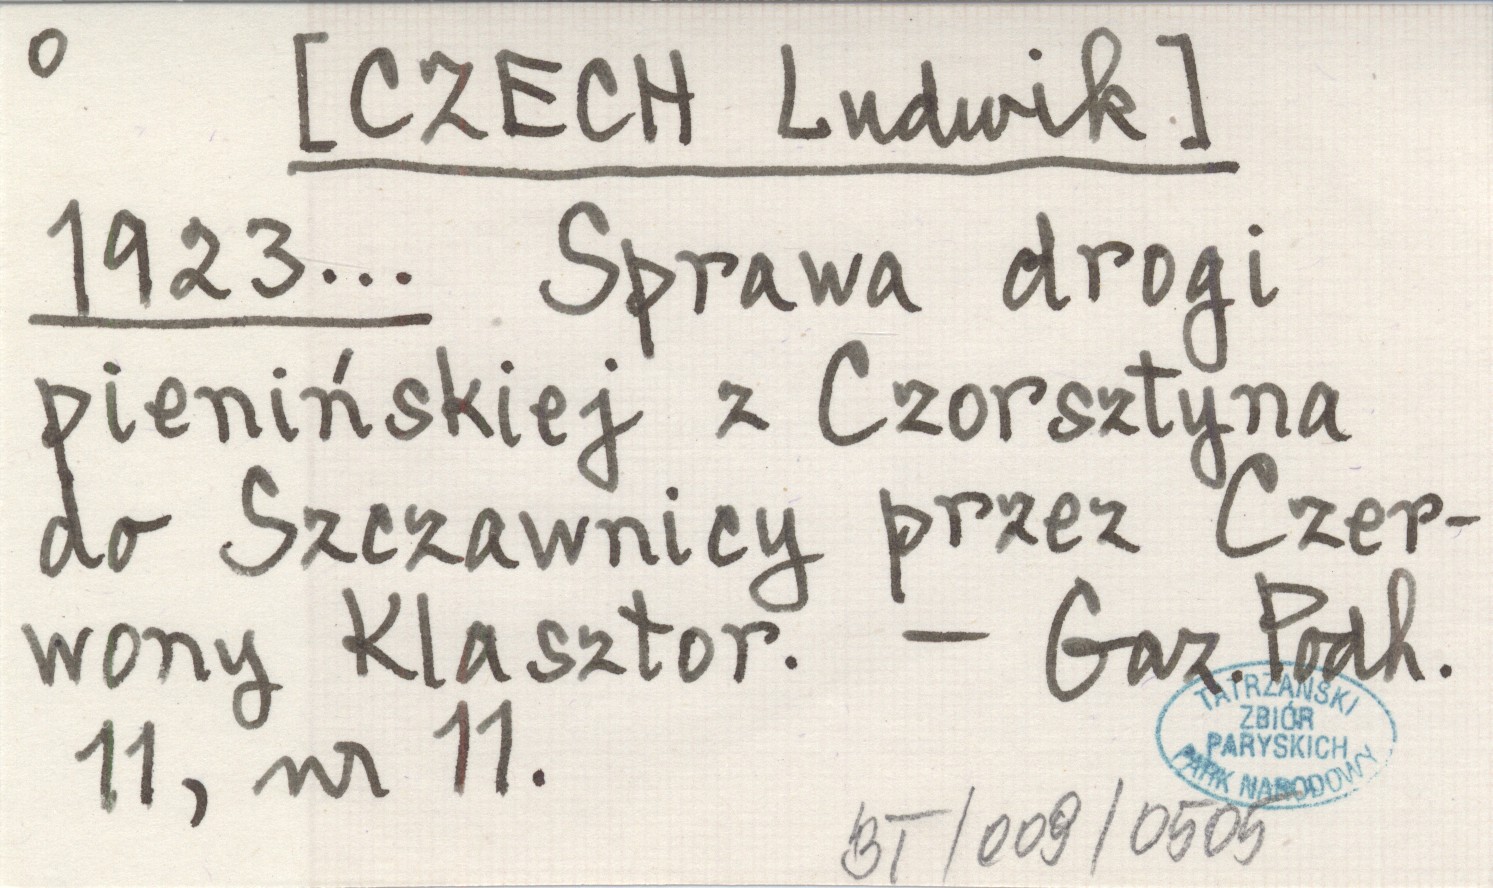 o [CZECH Ludwik]
1923... Sprawa drogi
pienińskiej z Czorsztyna
do Szczawnicy przez Czer-
wony Klasztor. — Gaz. Podh.
11, nr 11.
TATRZAŃSKI
ZBIÓR
PARYSKICH
PARK NARODOWY
BT/009/0505